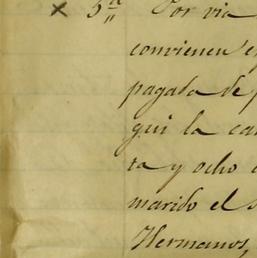 x 5ª Por via
convienen e
pagada de
gui la ca
ta y ocho
marido el s
Hermanos,